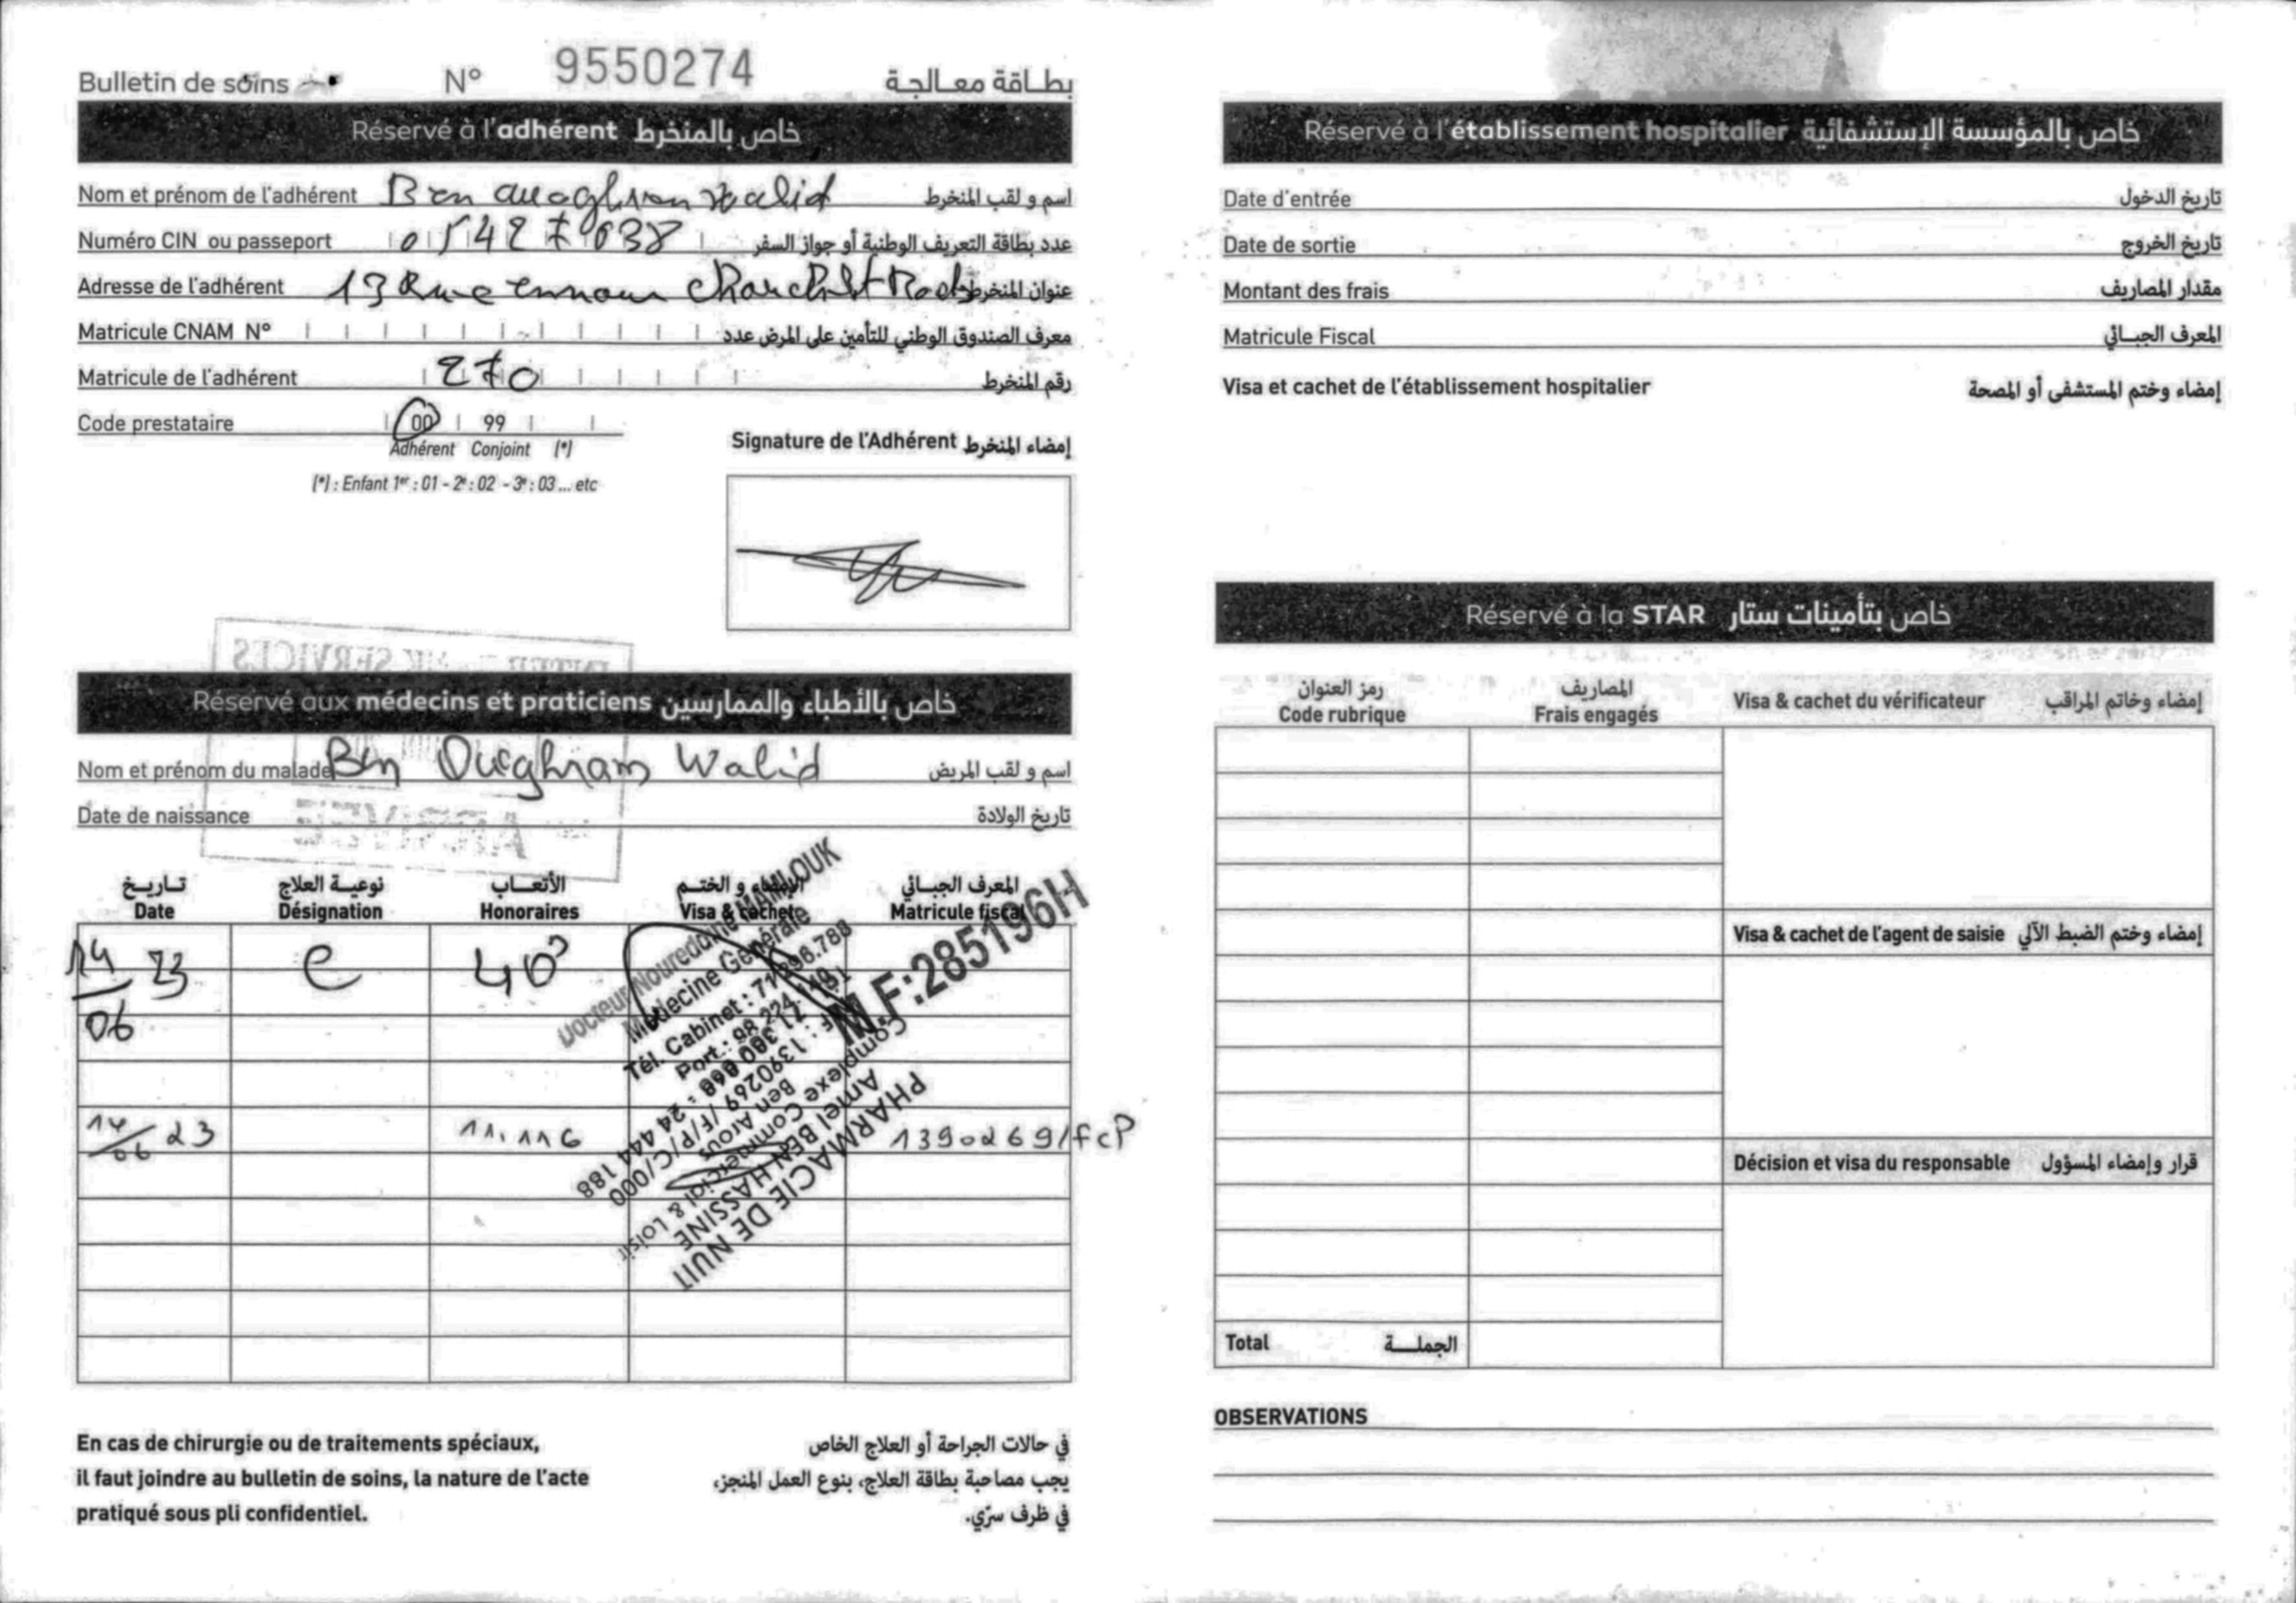 Bulletin de soins N° 9550274 بطاقة معالجة
Réservé à l'adhérent خاص بالمنخرط
Nom et prénom de l'adhérent Ben Walid اسم و لقب المنخرط
Numéro CIN ou passeport 05427038 عدد بطاقة التعريف الوطنية أو جواز السفر
Adresse de l'adhérent 13 Rue عنوان المنخرط
Matricule CNAM N° معرف الصندوق الوطني للتأمين على المرض عدد
Matricule de l'adhérent 270 رقم المنخرط
Code prestataire 00 99
Adhérent Conjoint (*)
(*) : Enfant 1er : 01 - 2e : 02 - 3e : 03 ... etc
Signature de l'Adhérent إمضاء المنخرط
Réservé aux médecins et praticiens خاص بالأطباء والممارسين
Nom et prénom du malade Ben Oueghram Walid اسم و لقب المريض
Date de naissance تاريخ الولادة
تاريخ نوعية العلاج الأتعاب الإمضاء و الختم المعرف الجبائي
Date Désignation Honoraires Visa & cachets Matricule fiscal
14/06 23 C 40
Docteur Noureddine MAMLOUK
Médecine Générale
Tél. Cabinet : 71 396.788
Port.: 98 224
M.F:285196H
14/06 23 11,116 1390269/FCP
PHARMACIE DE NUIT
Amel BEN HASSINE
Complexe Commercial & Loisir
Ben Arous
1390269 /F/P/C/000
24 444 188
En cas de chirurgie ou de traitements spéciaux,
il faut joindre au bulletin de soins, la nature de l'acte
pratiqué sous pli confidentiel.
في حالات الجراحة أو العلاج الخاص
يجب مصاحبة بطاقة العلاج، بنوع العمل المنجز،
في ظرف سرّي.
Réservé à l'établissement hospitalier خاص بالمؤسسة الإستشفائية
Date d'entrée تاريخ الدخول
Date de sortie تاريخ الخروج
Montant des frais مقدار المصاريف
Matricule Fiscal المعرف الجبائي
Visa et cachet de l'établissement hospitalier إمضاء وختم المستشفى أو المصحة
Réservé à la STAR خاص بتأمينات ستار
رمز العنوان المصاريف
Code rubrique Frais engagés Visa & cachet du vérificateur إمضاء وخاتم المراقب
Visa & cachet de l'agent de saisie إمضاء وختم الضبط الآلي
Décision et visa du responsable قرار وإمضاء المسؤول
Total الجملة
OBSERVATIONS